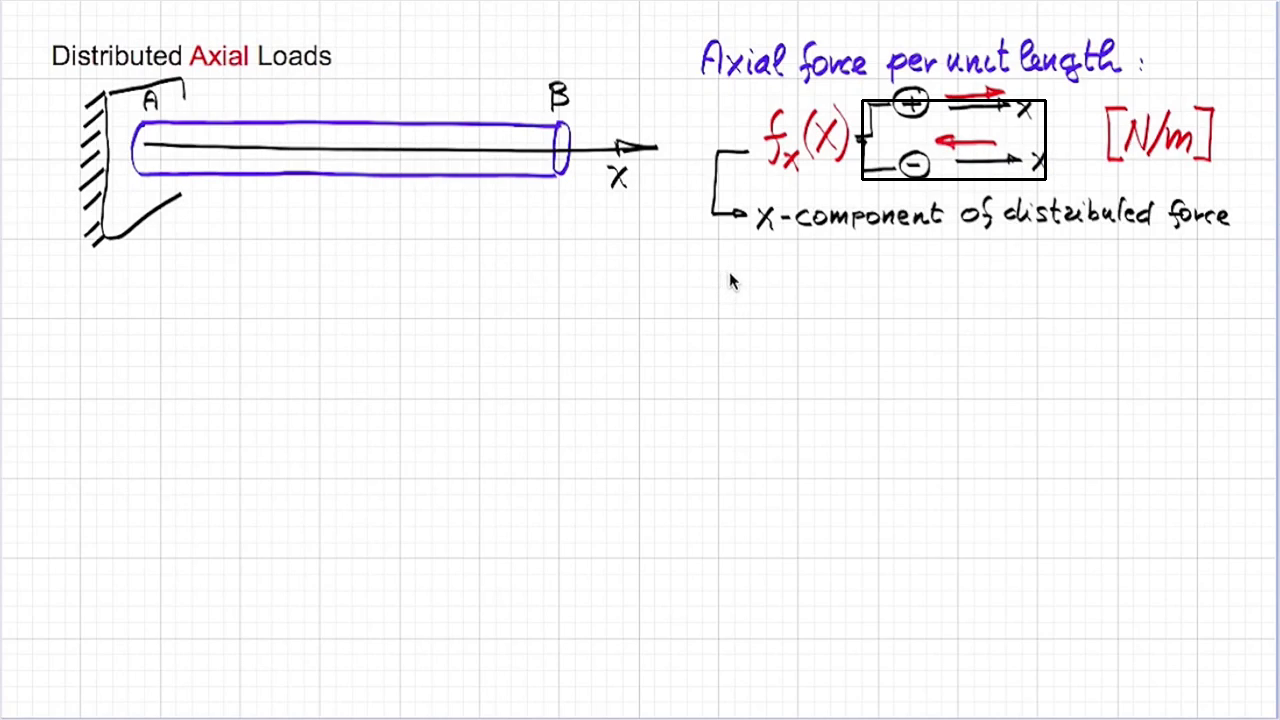 Distributed Axial Loads
Axial force per unit length :
A
B
x
fx(x)
+ x
- x
[N/m]
x-component of distributed force